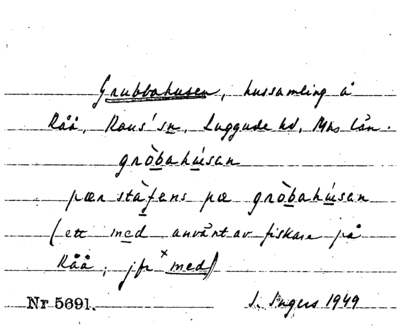 Grubbahusen, hussamling å
Råå, Raus' sn, Luggude hd, Mhs län.
gròbahúsan
pær stàfens pæ gròbahúsan
(ett med använt av fiskare på
Råå; jfr ˣmed)
Nr 5691. I. Ingers 1949